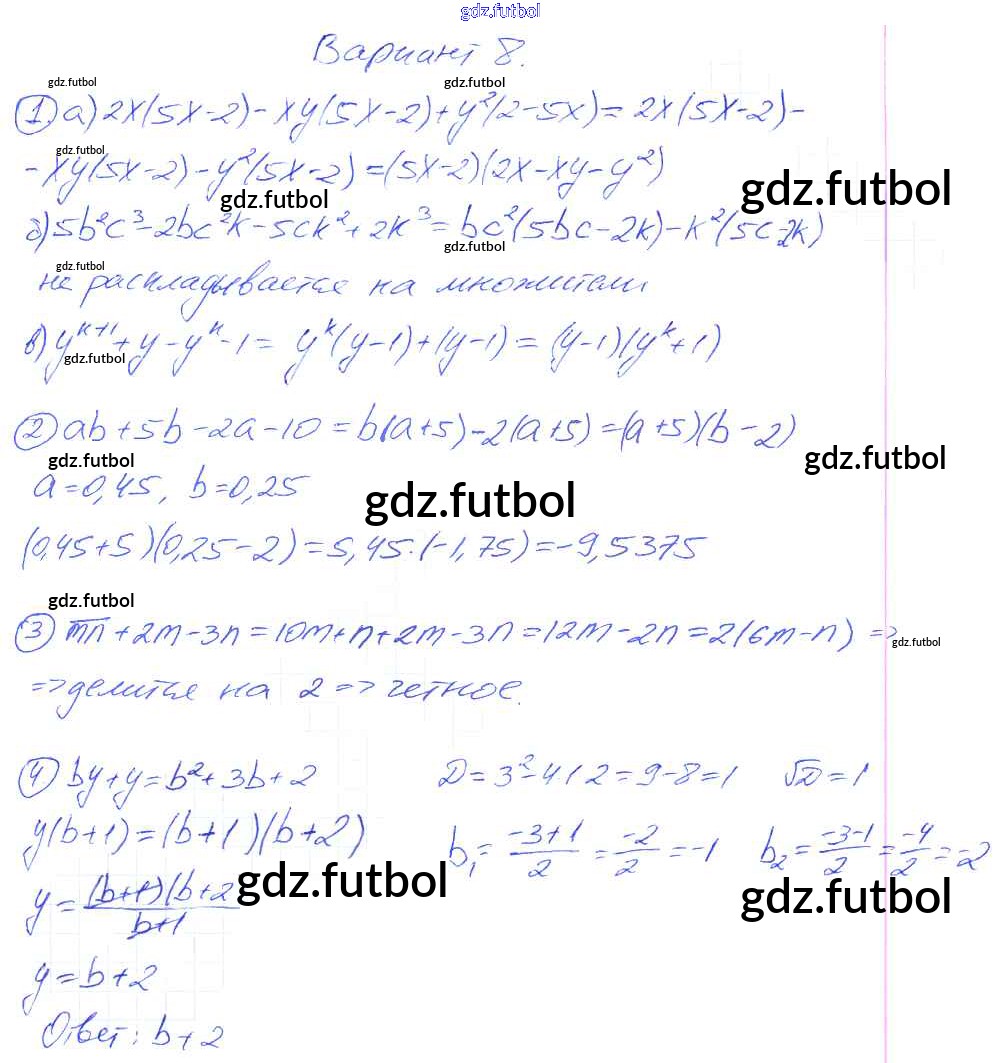 gdz.futbol
Вариант 8.
gdz.futbol gdz.futbol
① а) 2x(5x-2)-xy(5x-2)+y²(2-5x)=2x(5x-2)-
gdz.futbol
-xy(5x-2)-y²(5x-2)=(5x-2)(2x-xy-y²)
gdz.futbol gdz.futbol
б) 5b²c³-2bc²k-5ck²+2k³=bc²(5bc-2k)-k²(5c-2k)
gdz.futbol gdz.futbol
не раскладывается на множители
в) y^{k+1}+y-y^k-1= y^k(y-1)+(y-1)=(y-1)(y^k+1)
gdz.futbol
② ab+5b-2a-10=b(a+5)-2(a+5)=(a+5)(b-2)
gdz.futbol gdz.futbol
a=0,45, b=0,25
gdz.futbol
(0,45+5)(0,25-2)=5,45·(-1,75)=-9,5375
gdz.futbol
③ m̅n̅+2m-3n=10m+n+2m-3n=12m-2n=2(6m-n) =>
gdz.futbol
=> делится на 2 => четное.
④ by+y=b²+3b+2 D=3²-4·2=9-8=1 √D=1
y(b+1)=(b+1)(b+2) b₁=\frac{-3+1}{2}=\frac{-2}{2}=-1 b₂=\frac{-3-1}{2}=\frac{-4}{2}=-2
gdz.futbol gdz.futbol
y=\frac{(b+1)(b+2}{b+1}
y=b+2
Ответ: b+2